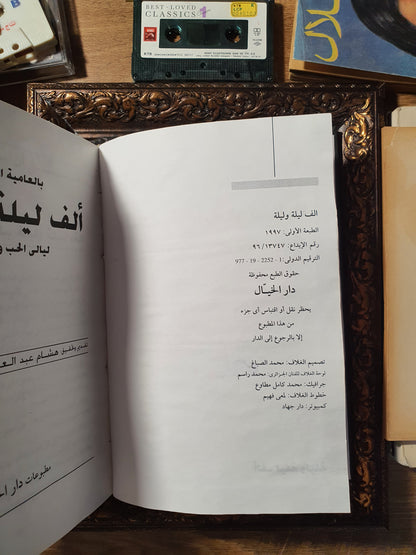 BEST-LOVED
CLASSICS 4
بالعامية
ألف ليلة
ليالى الحب
هشام عبد
مطبوعات دار
الف ليلة وليلة
الطبعة الأولى: ١٩٩٧
رقم الإيداع: ١٣٧٤٧ / ٩٦
الترقيم الدولى: 1 - 2252 - 19 - 977
حقوق الطبع محفوظة
دار الخيـال
يحظر نقل أو اقتباس أى جزء
من هذا المطبوع
إلا بالرجوع إلى الدار
تصميم الغلاف: محمد الصباغ
لوحة الغلاف للفنان الجزائرى: محمد راسم
جرافيك: محمد كامل مطاوع
خطوط الغلاف: لمعى فهيم
كمبيوتر: دار جهاد